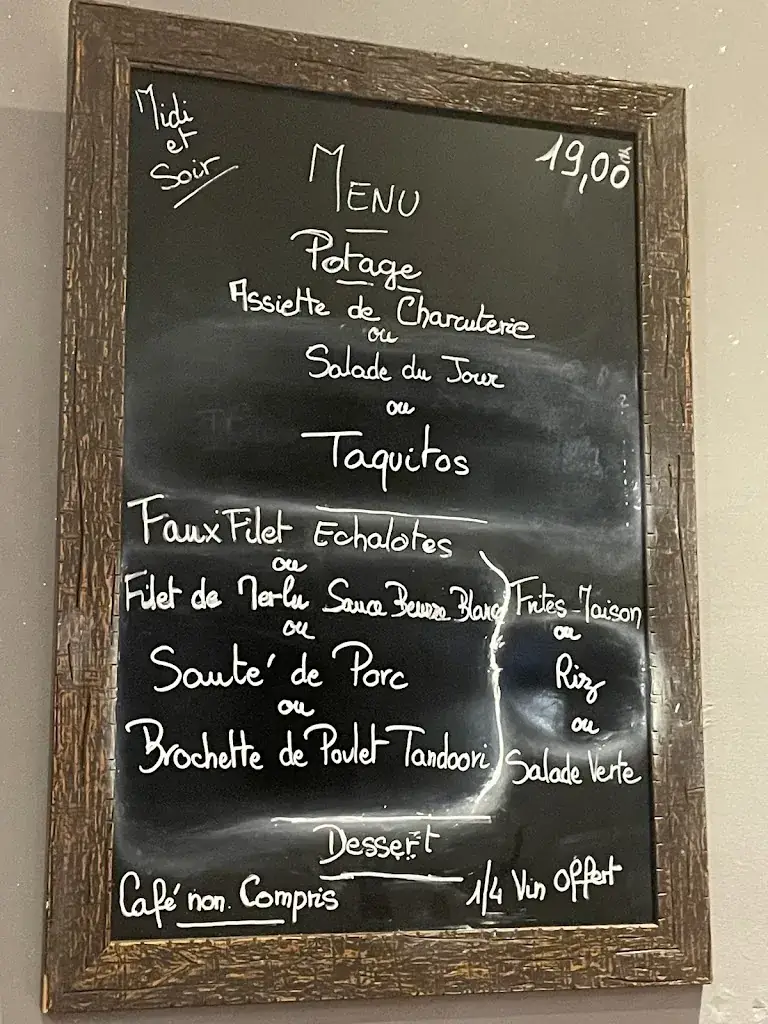 Midi
et
Soir
19,00
MENU
Potage
Assiette de Charcuterie
ou
Salade du Jour
ou
Taquitos
Faux Filet Echalotes
ou
Filet de Merlu Sauce Beurre Blanc
ou
Sauté de Porc
ou
Brochette de Poulet Tandoori
Frites Maison
ou
Riz
ou
Salade Verte
Dessert
Café non Compris
1/4 Vin Offert